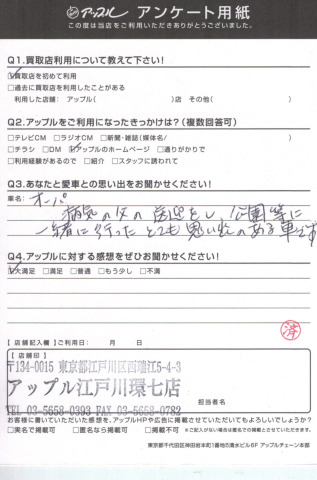 アップル アンケート用紙
この度は当店をご利用いただきありがとうございました。
Q1.買取店利用について教えて下さい!
☑買取を初めて利用
□過去に買取を利用したことがある
利用した店舗: アップル( )店 その他( )
Q2.アップルをご利用になったきっかけは?(複数回答可)
□テレビCM □ラジオCM □新聞・雑誌(媒体名/ )
□チラシ □DM ☑アップルのホームページ □通りがかりで
□利用経験があるので □紹介 □スタッフに誘われて
Q3.あなたと愛車との思い出をお聞かせください!
車名: オーパ
病気の父の送迎をし、公園等に
一緒に行ったとても思い出のある車です
Q4.アップルに対する感想をぜひお聞かせください!
☑大満足 □満足 □普通 □もう少し □不満
済
【店舗記入欄】ご利用日: 月 日
【店舗印】
〒134-0015 東京都江戸川区西瑞江5-4-3
アップル江戸川環七店
TEL 03-5658-0393 FAX 03-5658-0782
担当者名
お客様に書いていただいた感想を、アップルHPや広告に掲載させていただいてもよろしいでしょうか?
□実名で掲載可 □匿名なら掲載可 □掲載不可 ※ご記入がない場合は匿名での掲載とさせていただきます。
東京都千代田区神田岩本町1番地5清水ビル6F アップルチェーン本部